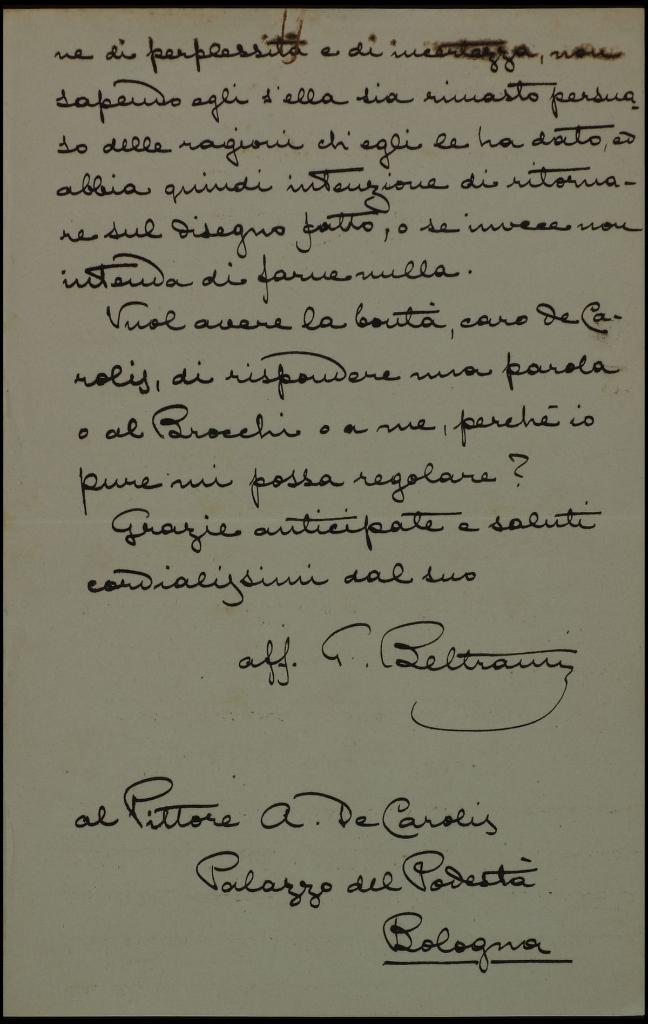 ne di perplessità e di incertezza, non
sapendo egli s'ella sia rimasto persua-
so delle ragioni ch'egli le ha dato, ed
abbia quindi intenzione di ritorna-
re sul disegno fatto, o se invece non
intenda di farne nulla.
Vuol avere la bontà, caro de Ca-
rolis, di rispondere una parola
o al Brocchi o a me, perché io
pure mi possa regolare?
Grazie anticipate e saluti
cordialissimi dal suo
aff. G. Beltrami
al Pittore A. De Carolis
Palazzo del Podestà
Bologna